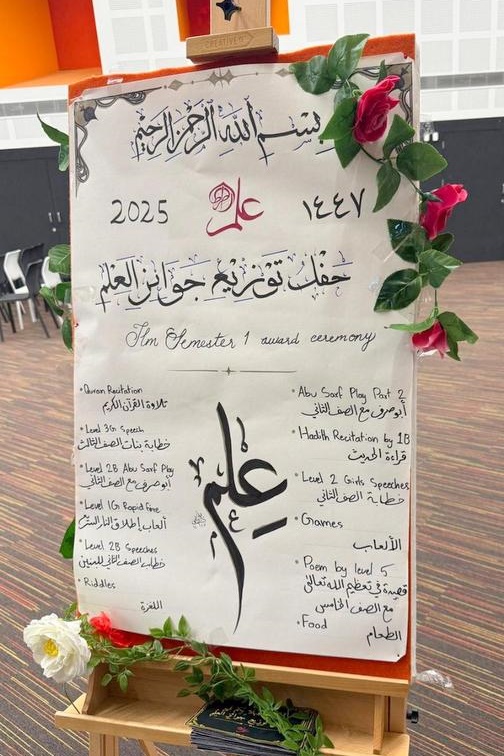 CREATIVE
بسم الله الرحمن الرحيم
2025 علم ١٤٤٧
حفل توزيع جوائز العلم
Ilm Semester 1 award ceremony
• Quran Recitation
تلاوة القرآن الكريم
• Level 3G Speech
خطابة بنات الصف الثالث
• Level 2B Abu Sarf Play
أبو صرف مع الصف الثاني
• Level 1G Rapid fire
ألعاب إطلاق النار السريع
• Level 2B Speeches
خطاب الصف الثاني للبنين
• Riddles
اللغزة
علم
• Abu Sarf Play Part 2
أبو صرف مع الصف الثاني
• Hadith Recitation by 1B
قراءة الحديث
• Level 2 Girls Speeches
خطابة الصف الثاني
• Games
الألعاب
• Poem by level 5
قصيدة في تعظيم الله تعالى
مع الصف الخامس
• Food
الطعام